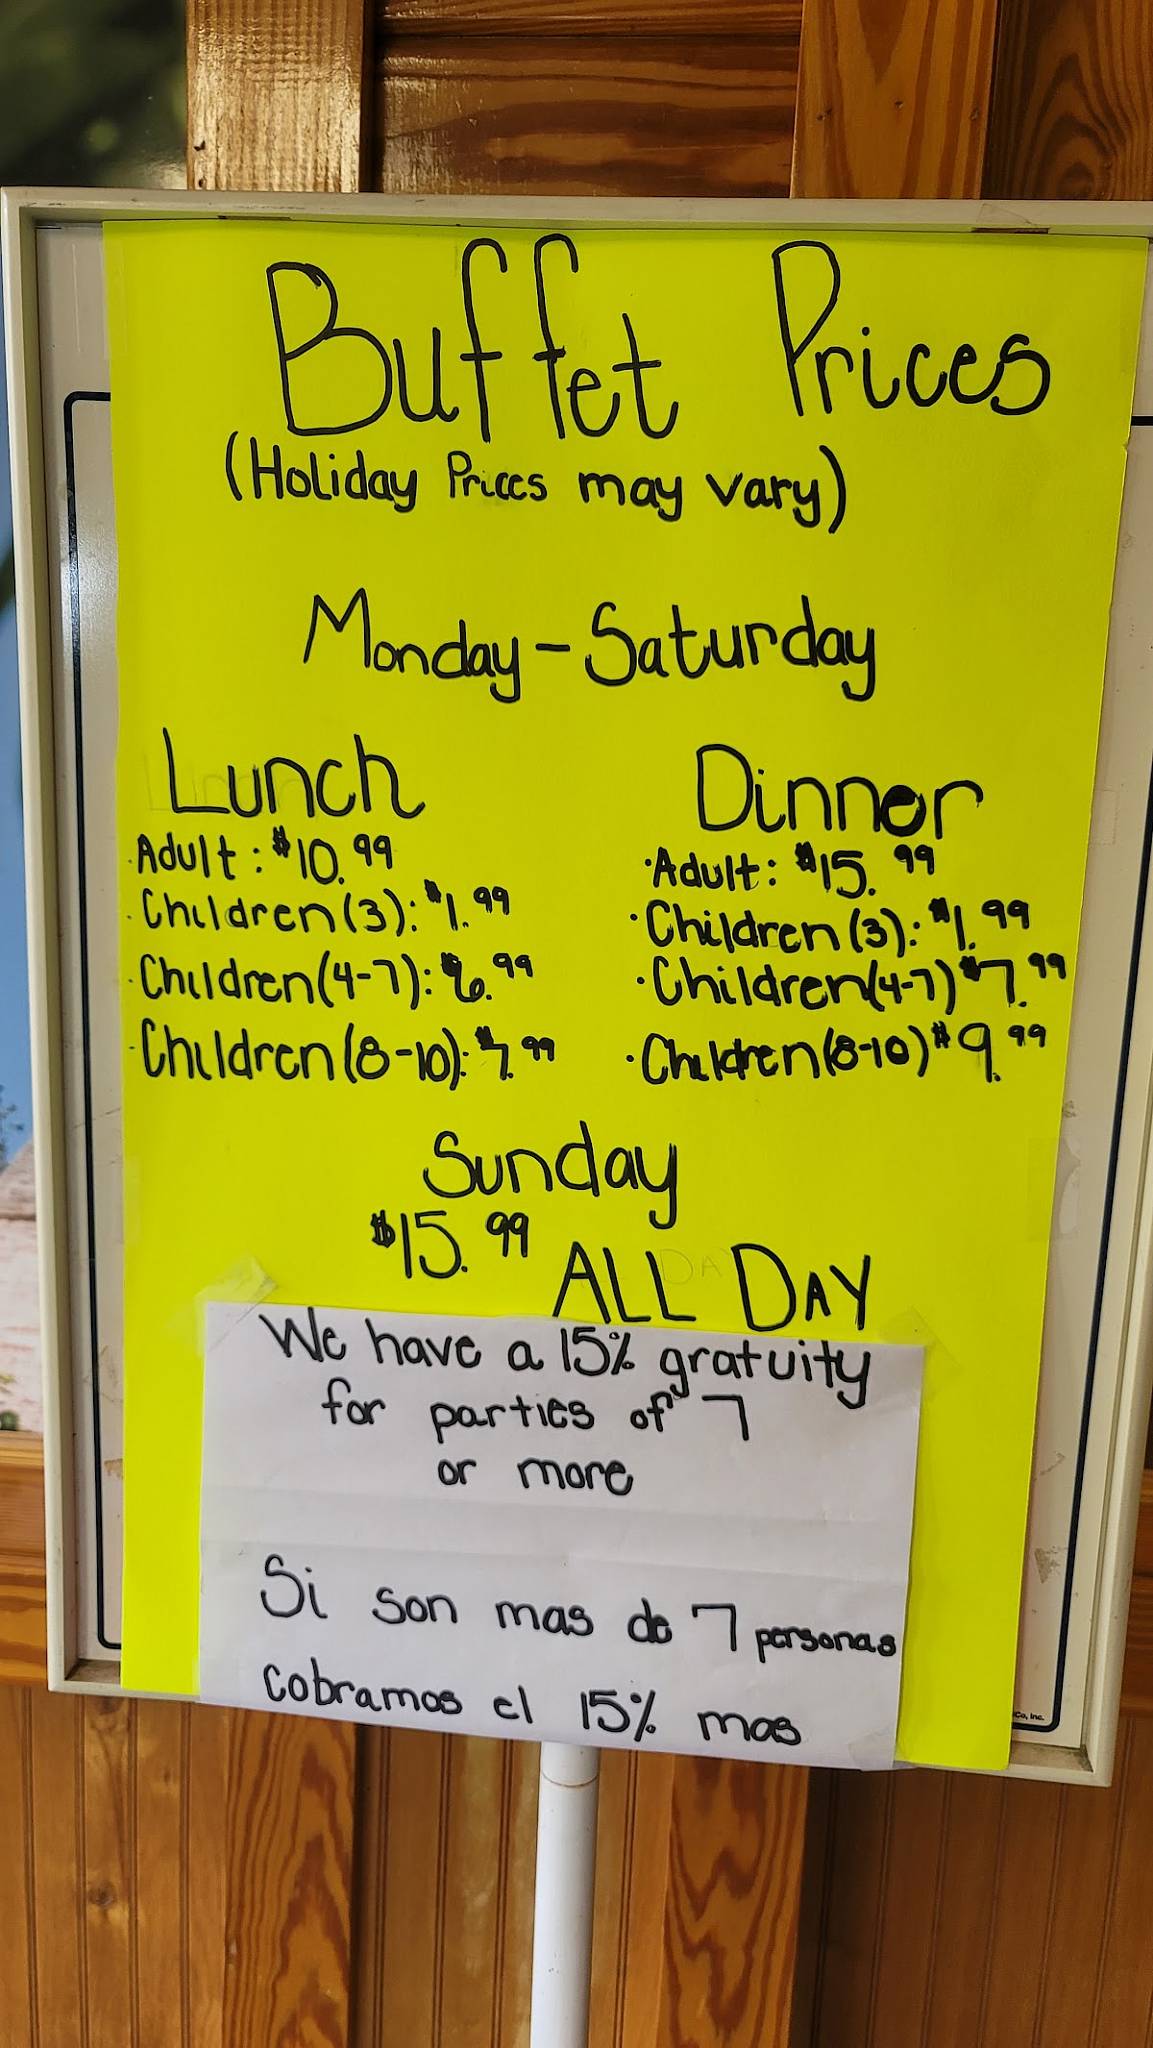 Buffet Prices
(Holiday Prices may vary)
Monday - Saturday
Lunch
· Adult: $10.99
· Children (3): $1.99
· Children (4-7): $6.99
· Children (8-10): $7.99
Dinner
· Adult: $15.99
· Children (3): $1.99
· Children (4-7) $7.99
· Children (8-10) $9.99
Sunday
$15.99 ALL DAY
We have a 15% gratuity
for parties of 7
or more
Si son mas de 7 personas
cobramos el 15% mas
Co, Inc.